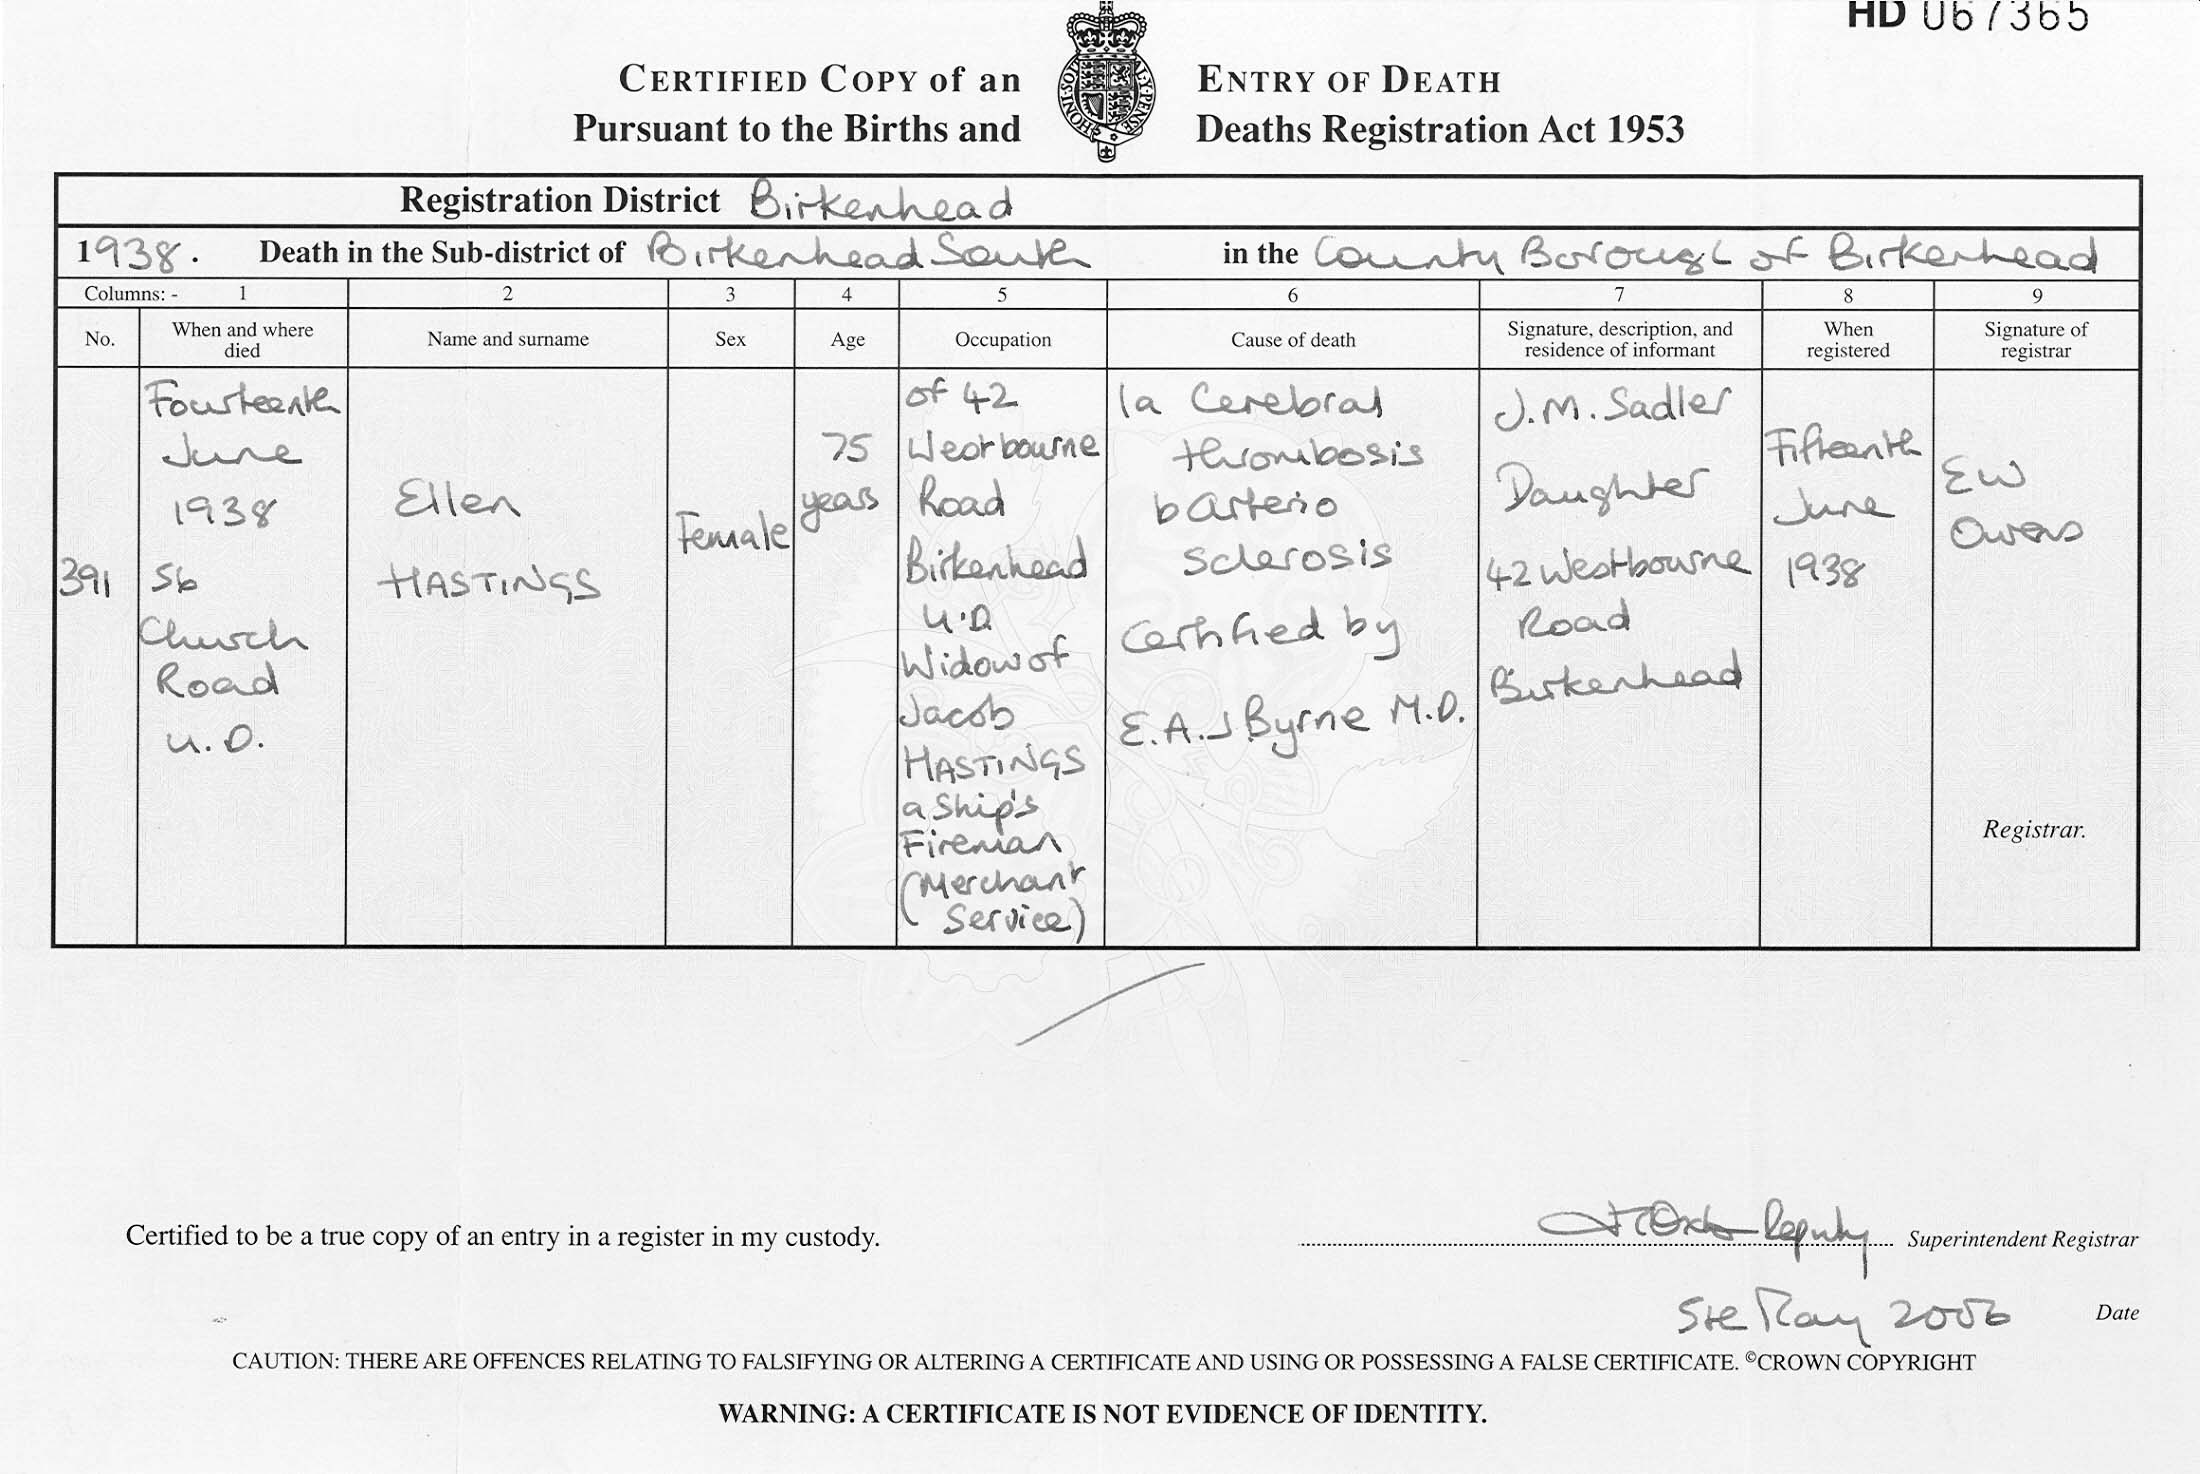 HD 067365
CERTIFIED COPY of an ENTRY OF DEATH
Pursuant to the Births and Deaths Registration Act 1953
HONI·SOIT AL·Y·PENSE
Registration District Birkenhead
1938. Death in the Sub-district of Birkenhead South in the County Borough of Birkenhead
Columns: - 1 2 3 4 5 6 7 8 9
No.
When and where
died
Name and surname
Sex
Age
Occupation
Cause of death
Signature, description, and
residence of informant
When
registered
Signature of
registrar
391
Fourteenth
June
1938
56
Church
Road
U.D.
Ellen
HASTINGS
Female
75
years
of 42
Westbourne
Road
Birkenhead
U.D.
Widow of
Jacob
HASTINGS
a Ship's
Fireman
(Merchant
Service)
1a Cerebral
thrombosis
b Arterio
sclerosis
Certified by
E.A.J Byrne M.D.
J.M. Sadler
Daughter
42 Westbourne
Road
Birkenhead
Fifteenth
June
1938
EW
Owens
Registrar.
Certified to be a true copy of an entry in a register in my custody.
Deputy Superintendent Registrar
May 2006 Date
CAUTION: THERE ARE OFFENCES RELATING TO FALSIFYING OR ALTERING A CERTIFICATE AND USING OR POSSESSING A FALSE CERTIFICATE. ©CROWN COPYRIGHT
WARNING: A CERTIFICATE IS NOT EVIDENCE OF IDENTITY.